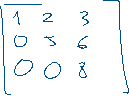 1 2 3
0 5 6
0 0 8